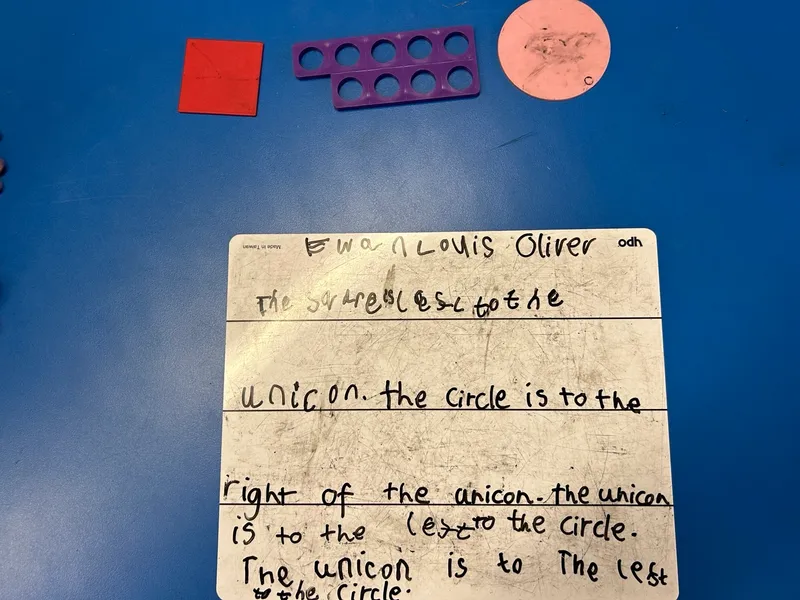 Made in Taiwan
Ewan Louis Oliver odh
The sqare is lest to the
unicon. the circle is to the
right of the unicon. the unicon
is to the lest to the circle.
The unicon is to The left
the circle.